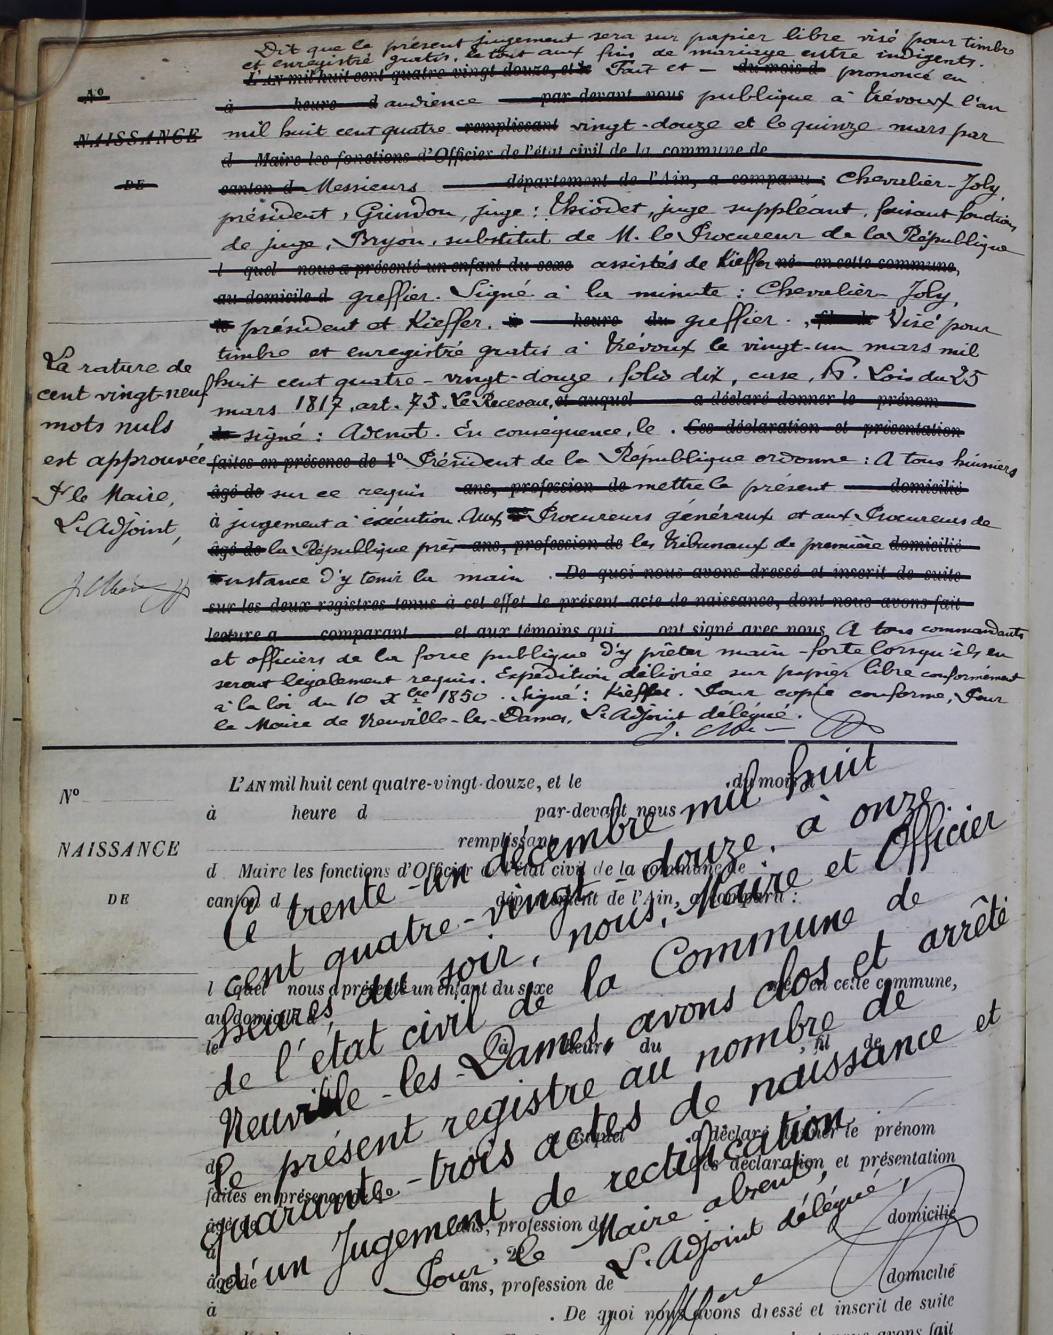 Dit que le présent jugement sera sur papier libre visé pour timbre
et enregistré gratis, le tout aux fins de mariage entre indigents.
L'AN mil huit cent quatre-vingt-douze, et le Fait et — du mois d prononcé en
N°
à heure d audience par-devant nous publique à Trévoux l'an
NAISSANCE
mil huit cent quatre remplissant vingt-douze et le quinze mars par
d Maire les fonctions d'Officier de l'état civil de la commune de
DE
canton d Messieurs département de l'Ain, a comparu : Chevalier-Joly,
président, Grindon, juge : Thiodet, juge suppléant, faisant fonction
de juge, Bryon, substitut de M. le Procureur de la République
l quel nous a présenté un enfant du sexe assistés de Kieffer né en cette commune,
au domicile d greffier. Signé à la minute : Chevalier-Joly,
le président et Kieffer. à heure du greffier. , Visé pour
timbre et enregistré gratis à Trévoux le vingt-un mars mil
huit cent quatre-vingt-douze, folio dix, case, 15. Lois du 25
mars 1817, art. 75. Le Receveur, et auquel a déclaré donner le prénom
de signé : Adenot. En conséquence, le . Ces déclaration et présentation
faites en présence de 1° Président de la République ordonne : A tous huissiers
âgé de sur ce requis ans, profession de mettre le présent domicilié
à jugement à exécution. Aux Procureurs généraux et aux Procureurs de
âgé de la République près ans, profession de les Tribunaux de première domicilié
instance d'y tenir la main . De quoi nous avons dressé et inscrit de suite
sur les deux registres tenus à cet effet le présent acte de naissance, dont nous avons fait
lecture a comparant et aux témoins qui ont signé avec nous A tous commandants
et officiers de la force publique d'y prêter main-forte lorsqu'ils en
seront légalement requis. Expédition délivrée sur papier libre conformément
à la loi du 10 Xbre 1850. Signé : Kieffer. Pour copie conforme, Pour
le Maire de Neuville-les-Dames, L'Adjoint délégué.
La rature de
cent vingt-neuf
mots nuls
est approuvée
Pr le Maire,
L'Adjoint,
L'AN mil huit cent quatre-vingt-douze, et le du mois d
N°
à heure d par-devant nous
remplissant
NAISSANCE
d Maire les fonctions d'Officier de l'état civil de la commune de
DE
canton d département de l'Ain, a comparu :
l quel nous a présenté un enfant du sexe né en cette commune,
au domicile d
le à heure du , fil de
et auquel a déclaré donner le prénom
de Ces déclaration et présentation
faites en présence de
âgé de ans, profession de domicilié
à 2°
âgé de ans, profession de domicilié
à . De quoi nous avons dressé et inscrit de suite
Ce trente-un décembre mil huit
cent quatre-vingt-douze, à onze
heures du soir, nous, Maire et Officier
de l'état civil de la Commune de
Neuville-les-Dames, avons clos et arrêté
le présent registre au nombre de
quarante-trois actes de naissance et
d'un Jugement de rectification.
Pour le Maire absent,
L'Adjoint délégué,